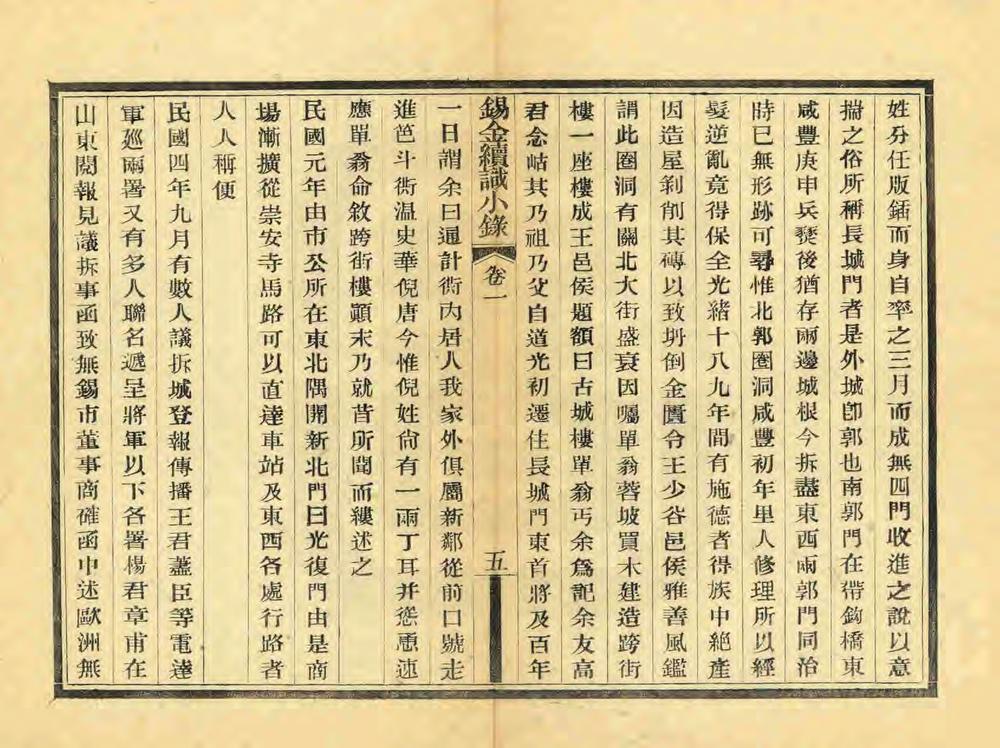 姓分任版鍤而身自率之三月而成無四門收進之說以意
揣之俗所稱長城門者是外城卽郭也南郭門在帶鈎橋東
咸豐庚申兵燹後猶存兩邊城根今拆盡東西兩郭門同治
時已無形跡可尋惟北郭圈洞咸豐初年里人修理所以經
髮逆亂竟得保全光緒十八九年間有施德者得族中絕產
因造屋剝削其磚以致坍倒金匱令王少谷邑侯雅善風鑑
謂此圈洞有關北大街盛衰因囑單翁蓉坡買木建造跨街
樓一座樓成王邑侯題額曰古城樓單翁丐余爲記余友高
君念岵其乃祖乃父自道光初遷住長城門東首將及百年
錫金續識小錄 卷一 五
一日謂余曰通計衖內居人我家外俱屬新鄰從前口號走
進笆斗衖溫史華倪唐今惟倪姓尙有一兩丁耳幷慫恿速
應單翁命敘跨街樓顚末乃就昔所聞而縷述之
民國元年由市公所在東北隅開新北門曰光復門由是商
場漸擴從崇安寺馬路可以直達車站及東西各處行路者
人人稱便
民國四年九月有數人議拆城登報傳播王君藎臣等電達
軍巡兩署又有多人聯名遞呈將軍以下各署楊君章甫在
山東閱報見議拆事函致無錫市董事商確函中述歐洲無